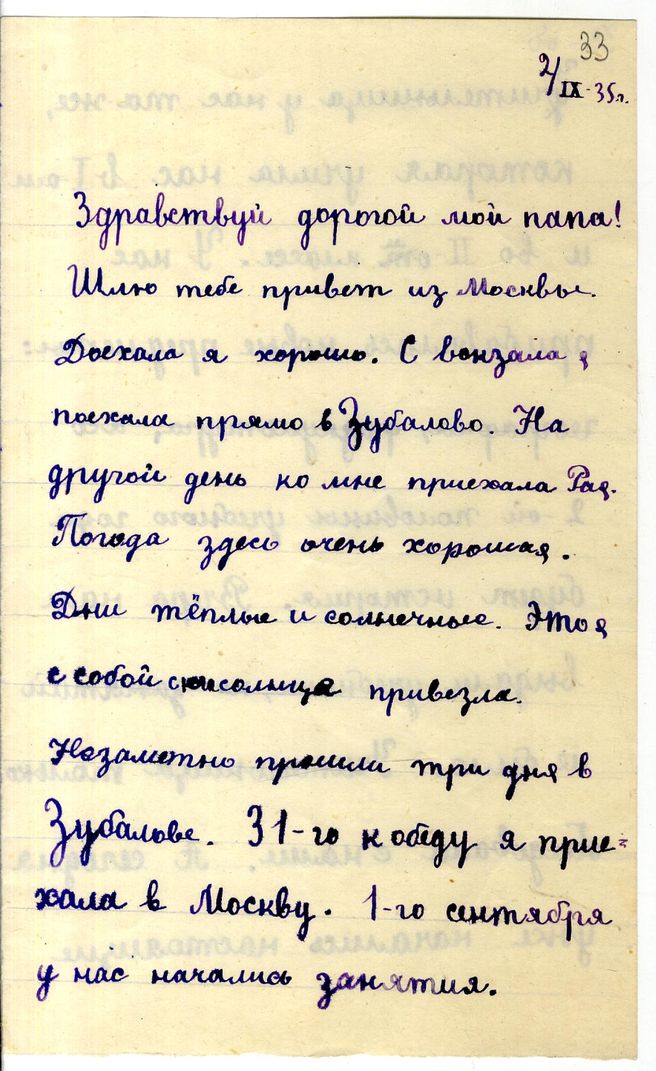 33
2/IX-35г.
Здравствуй дорогой мой папа!
Шлю тебе привет из Москвы.
Доехала я хорошо. С вокзала я
поехала прямо в Зубалово. На
другой день ко мне приехала Рая.
Погода здесь очень хорошая.
Дни тёплые и солнечные. Это я
с собой солнца привезла.
Незаметно прошли три дня в
Зубалове. 31-го к обеду я прие=
хала в Москву. 1-го сентября
у нас начались занятия.